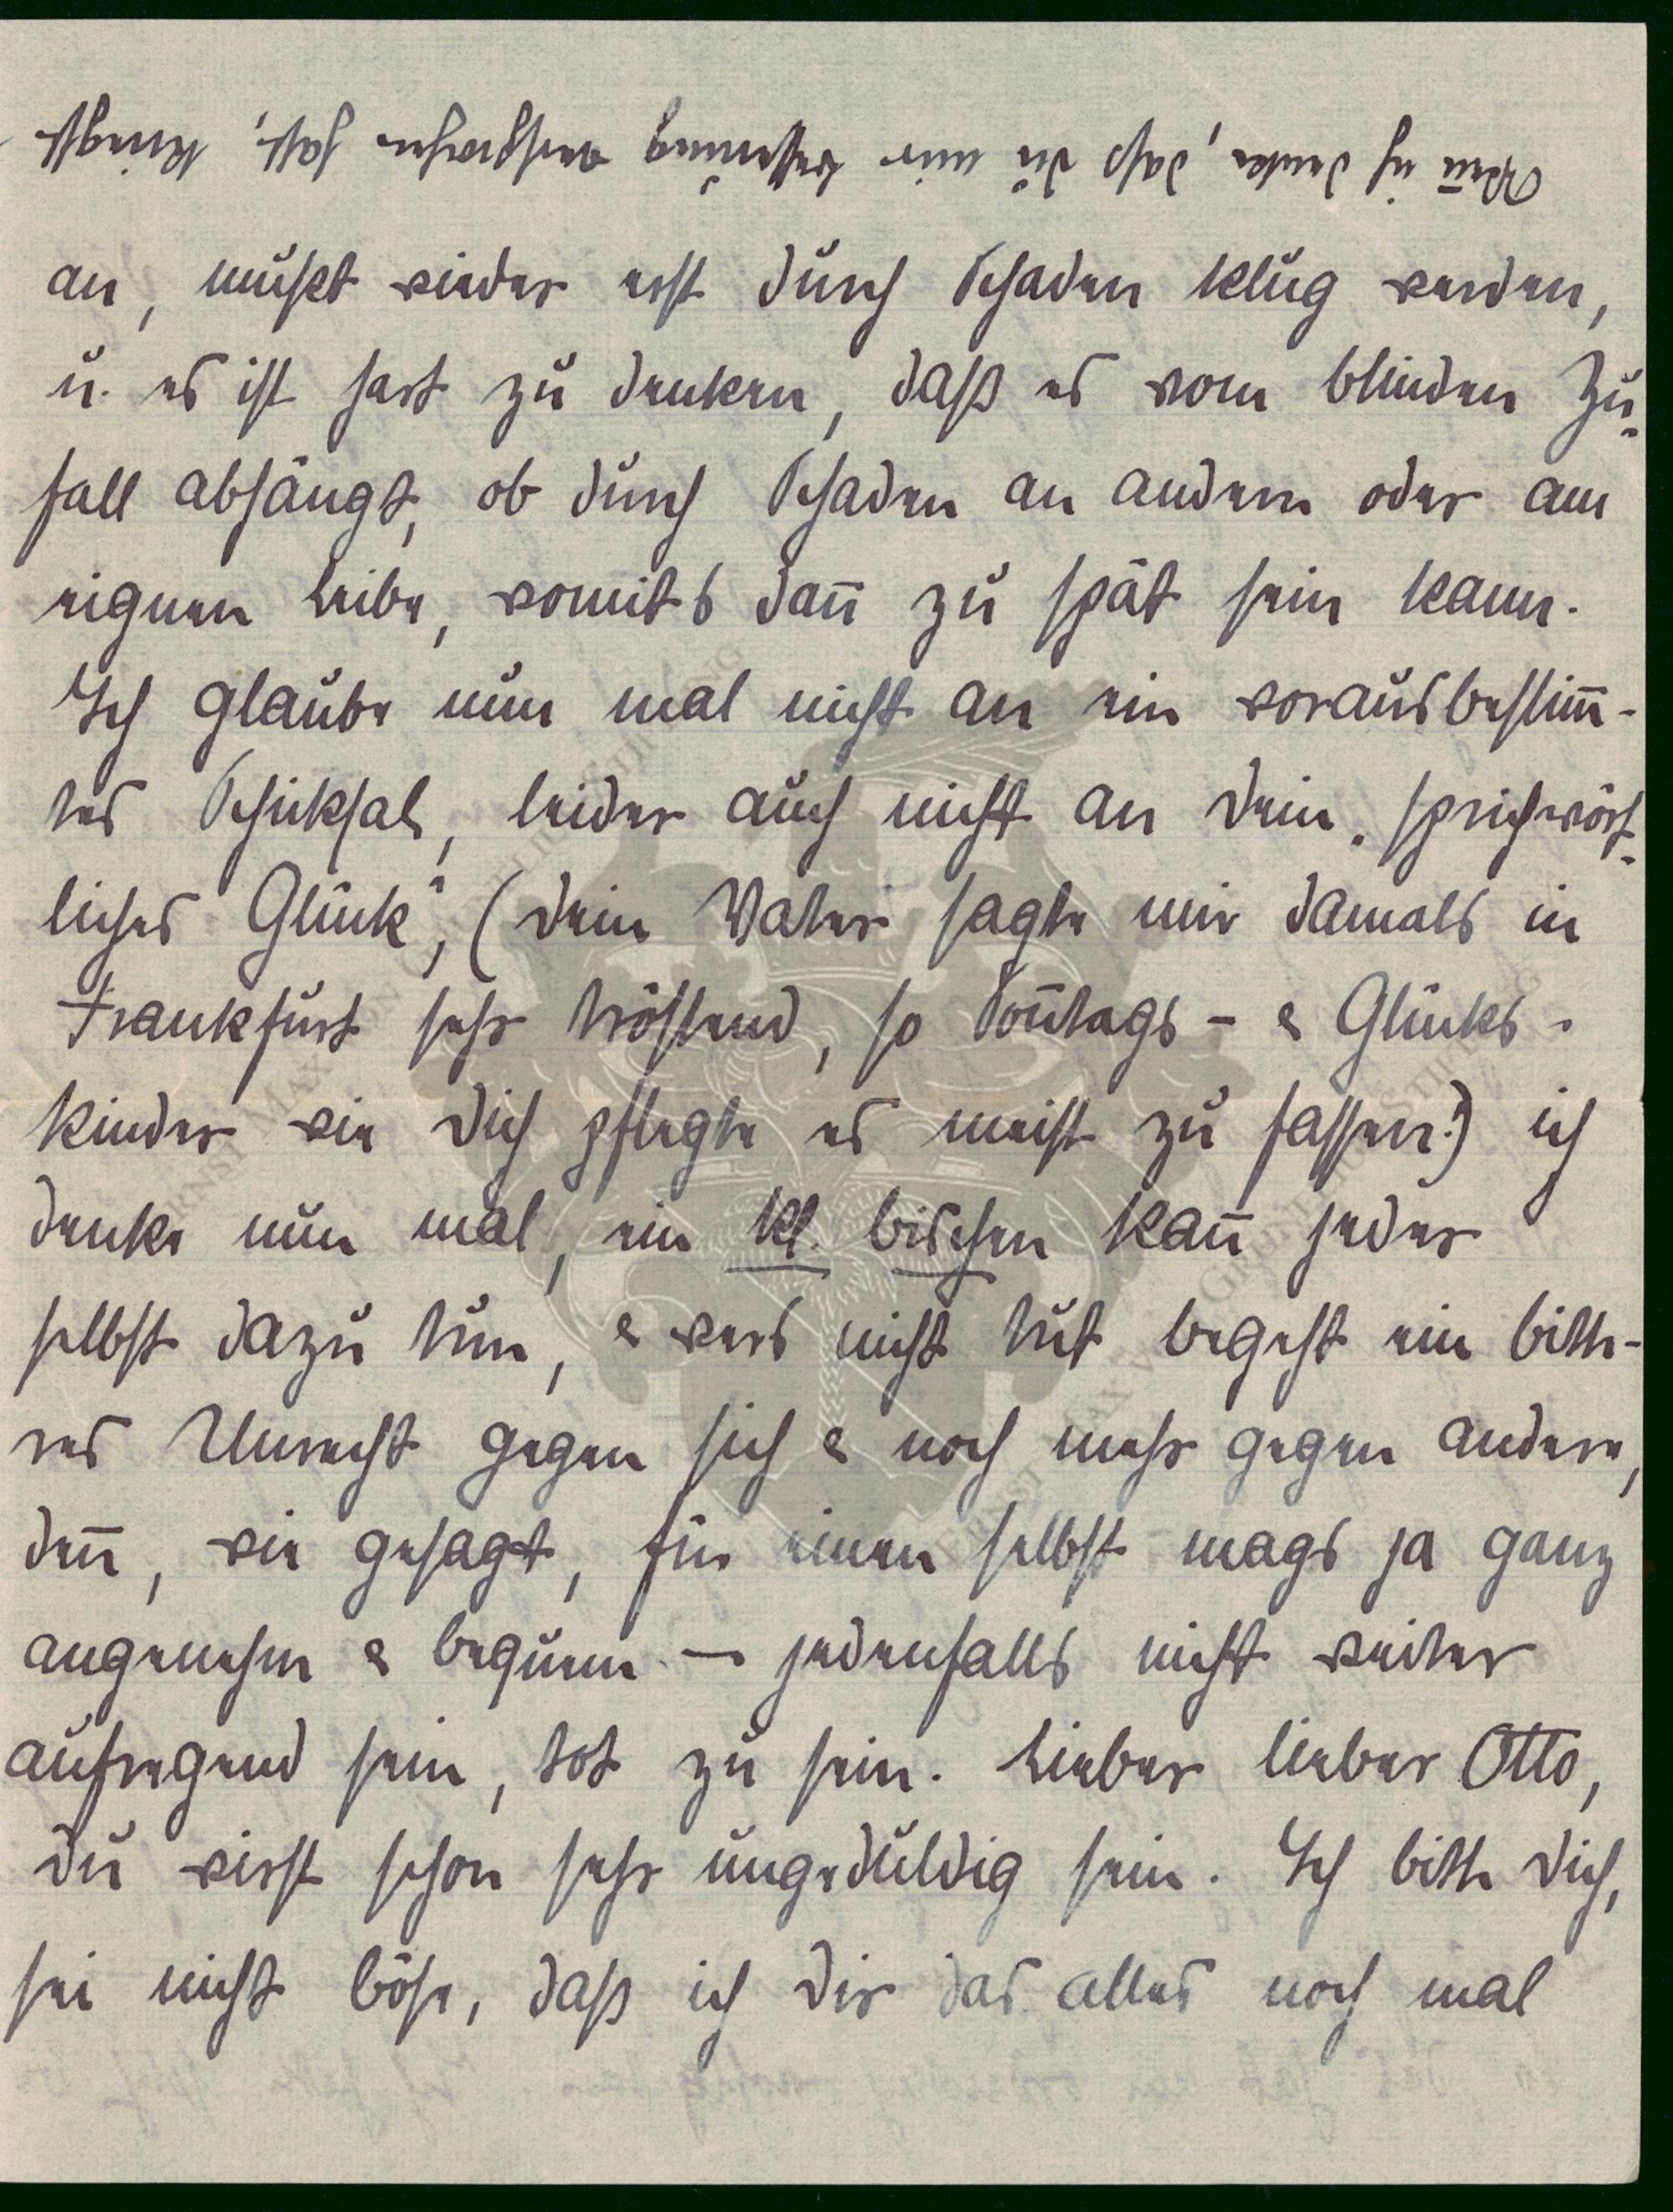 Wenn ich denke, daß du mir Besserung versprochen hast, kriegst
an, mußt wieder erst durch Schaden klug werden,
u. es ist hart zu denken, daß es vom blinden Zu-
fall abhängt, ob durch Schaden an andern oder am
eignen Leibe, womits dan̄ zu spät sein kann.
Ich glaube nun mal nicht an ein vorausbestim̄-
tes Schicksal, leider auch nicht an dein „sprichwört-
liches Glück", (dein Vater sagte mir damals in
Frankfurt sehr tröstend, so Son̄tags- & Glücks-
kinder wie dich pflegte es meist zu fassen!) ich
denke nun mal, ein kl. bischen kan̄ jeder
selbst dazu tun, & wers nicht tut begeht ein bitte-
res Unrecht gegen sich & noch mehr gegen andere,
den̄, wie gesagt, für einen selbst mags ja ganz
angenehm & bequem – jedenfalls nicht weiter
aufregend sein, tot zu sein. Lieber lieber Otto,
du wirst schon sehr ungeduldig sein. Ich bitte dich,
sei nicht böse, daß ich dir das alles noch mal